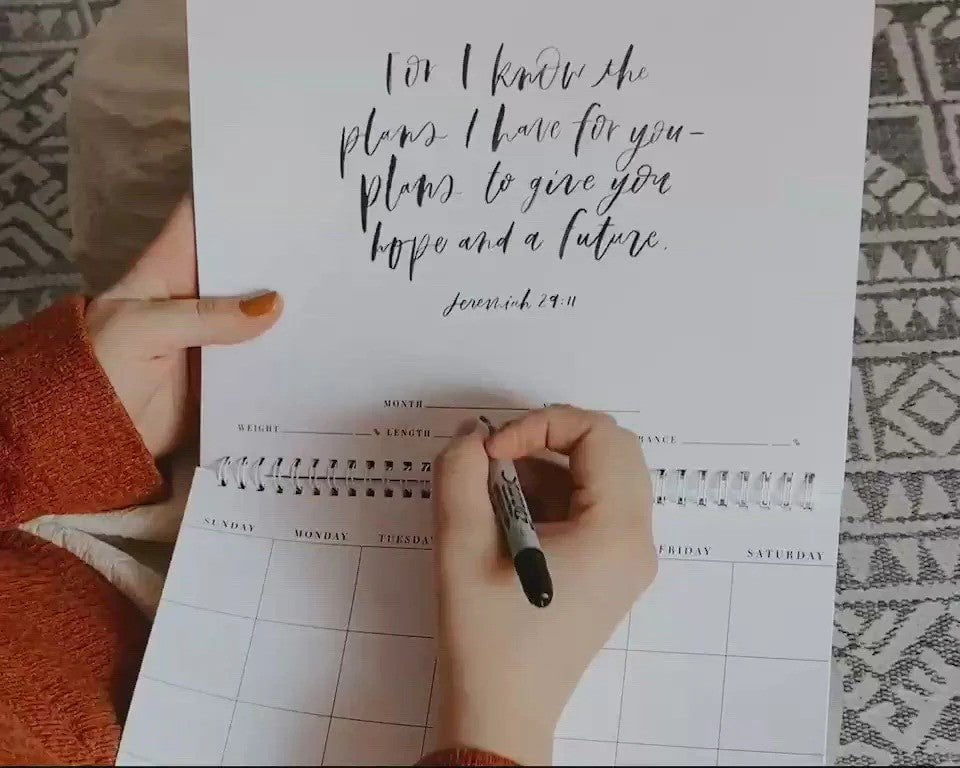 For I know the
plans I have for you-
plans to give you
hope and a future.
Jeremiah 29:11
MONTH
WEIGHT % LENGTH %
SUNDAY MONDAY TUESDAY FRIDAY SATURDAY